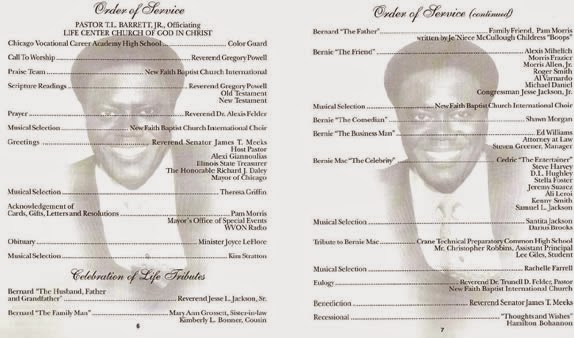 Order of Service
PASTOR T.L. BARRETT, JR., Officiating
LIFE CENTER CHURCH OF GOD IN CHRIST
Chicago Vocational Career Academy High School Color Guard
Call To Worship Reverend Gregory Powell
Praise Team New Faith Baptist Church International
Scripture Readings Reverend Gregory Powell
Old Testament
New Testament
Prayer Reverend Dr. Alexis Felder
Musical Selection New Faith Baptist Church International Choir
Greetings Reverend Senator James T. Meeks
Host Pastor
Alexi Giannoulias
Illinois State Treasurer
The Honorable Richard J. Daley
Mayor of Chicago
Musical Selection Theresa Griffin
Acknowledgement of
Cards, Gifts, Letters and Resolutions Pam Morris
Mayor's Office of Special Events
WVON Radio
Obituary Minister Joyce LeFlore
Musical Selection Kim Stratton
Celebration of Life Tributes
Bernard "The Husband, Father
and Grandfather" Reverend Jesse L. Jackson, Sr.
Bernard "The Family Man" Mary Ann Grossett, Sister-in-law
Kimberly L. Bonner, Cousin
6
Order of Service (continued)
Bernard "The Father" Family Friend, Pam Morris
written by Je'Niece McCullough Childress "Boops"
Bernie "The Friend" Alexis Mihelich
Morris Frazier
Morris Allen, Jr.
Roger Smith
Al Varnardo
Michael Daniel
Congressman Jesse Jackson, Jr.
Musical Selection New Faith Baptist Church International Choir
Bernie "The Comedian" Shawn Morgan
Bernie "The Business Man" Ed Williams
Attorney at Law
Steven Greener, Manager
Bernie Mac "The Celebrity" Cedric "The Entertainer"
Steve Harvey
D.L. Hughley
Stella Foster
Jeremy Suarez
Ali Leroi
Kenny Smith
Samuel L. Jackson
Musical Selection Santita Jackson
Darius Brooks
Tribute to Bernie Mac Crane Technical Preparatory Common High School
Mr. Christopher Robbins, Assistant Principal
Lee Giles, Student
Musical Selection Rachelle Farrell
Eulogy Reverend Dr. Trunell D. Felder, Pastor
New Faith Baptist International Church
Benediction Reverend Senator James T. Meeks
Recessional "Thoughts and Wishes"
Hamilton Bohannon
7